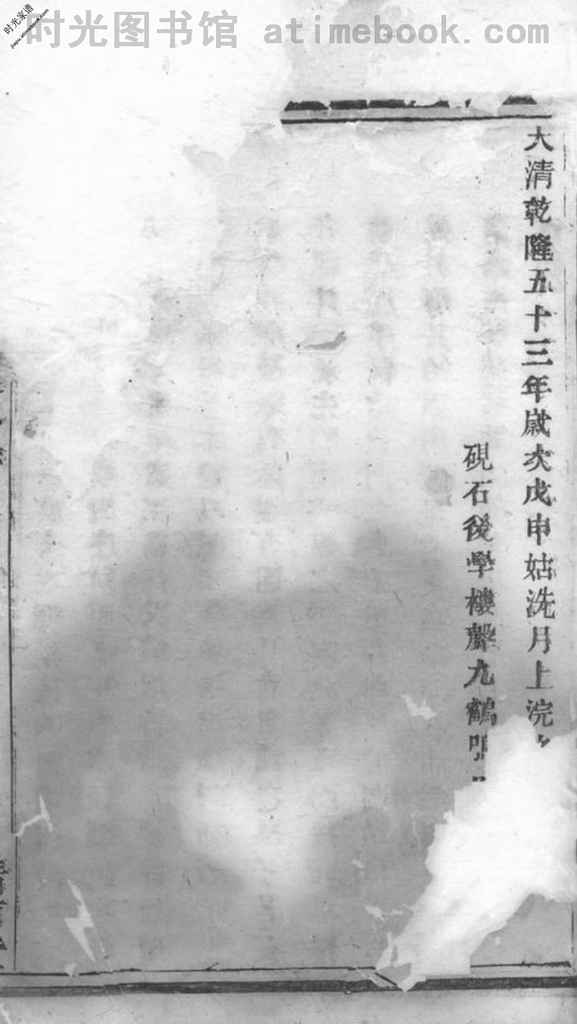 时光图书馆 atimebook.com
时光家谱
大清乾隆五十三年歲次戊申姑洗月上浣
硯石後學樓聲九鶴